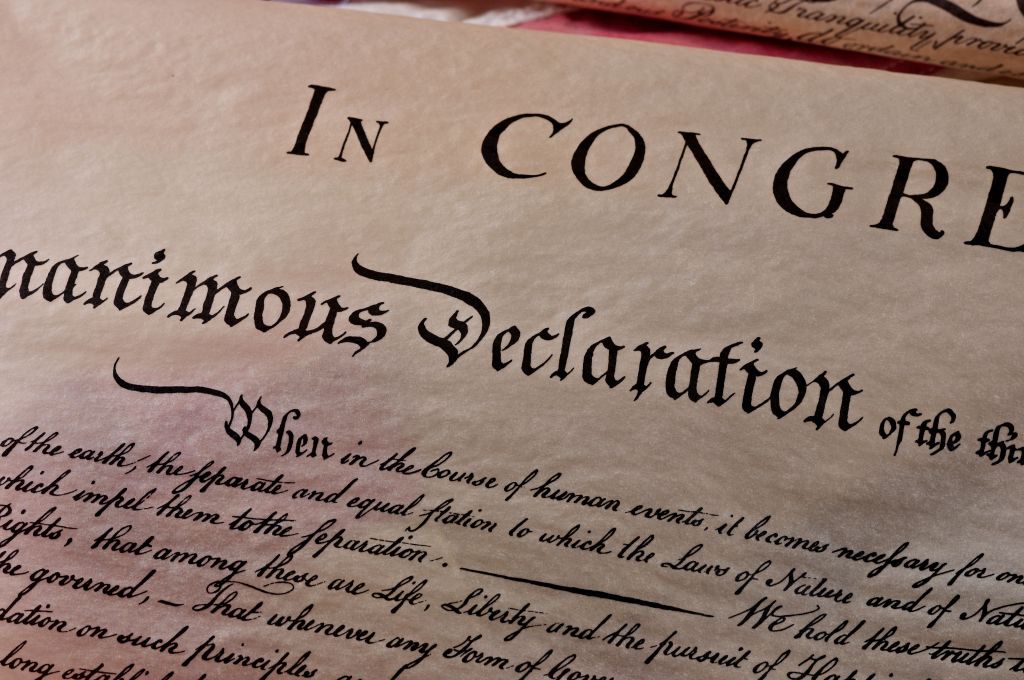 Tranquility, provi
Posterity, do ordain and
In CONGRE
nanimous Declaration of the thi
When in the Course of human events, it becomes necessary for on
of the earth, the separate and equal station to which the Laws of Nature and of Natu
which impel them to the separation. — We hold these truths t
Rights, that among these are Life, Liberty and the pursuit of Happi
the governed, — That whenever any Form of Gover
dation on such principles
long establi